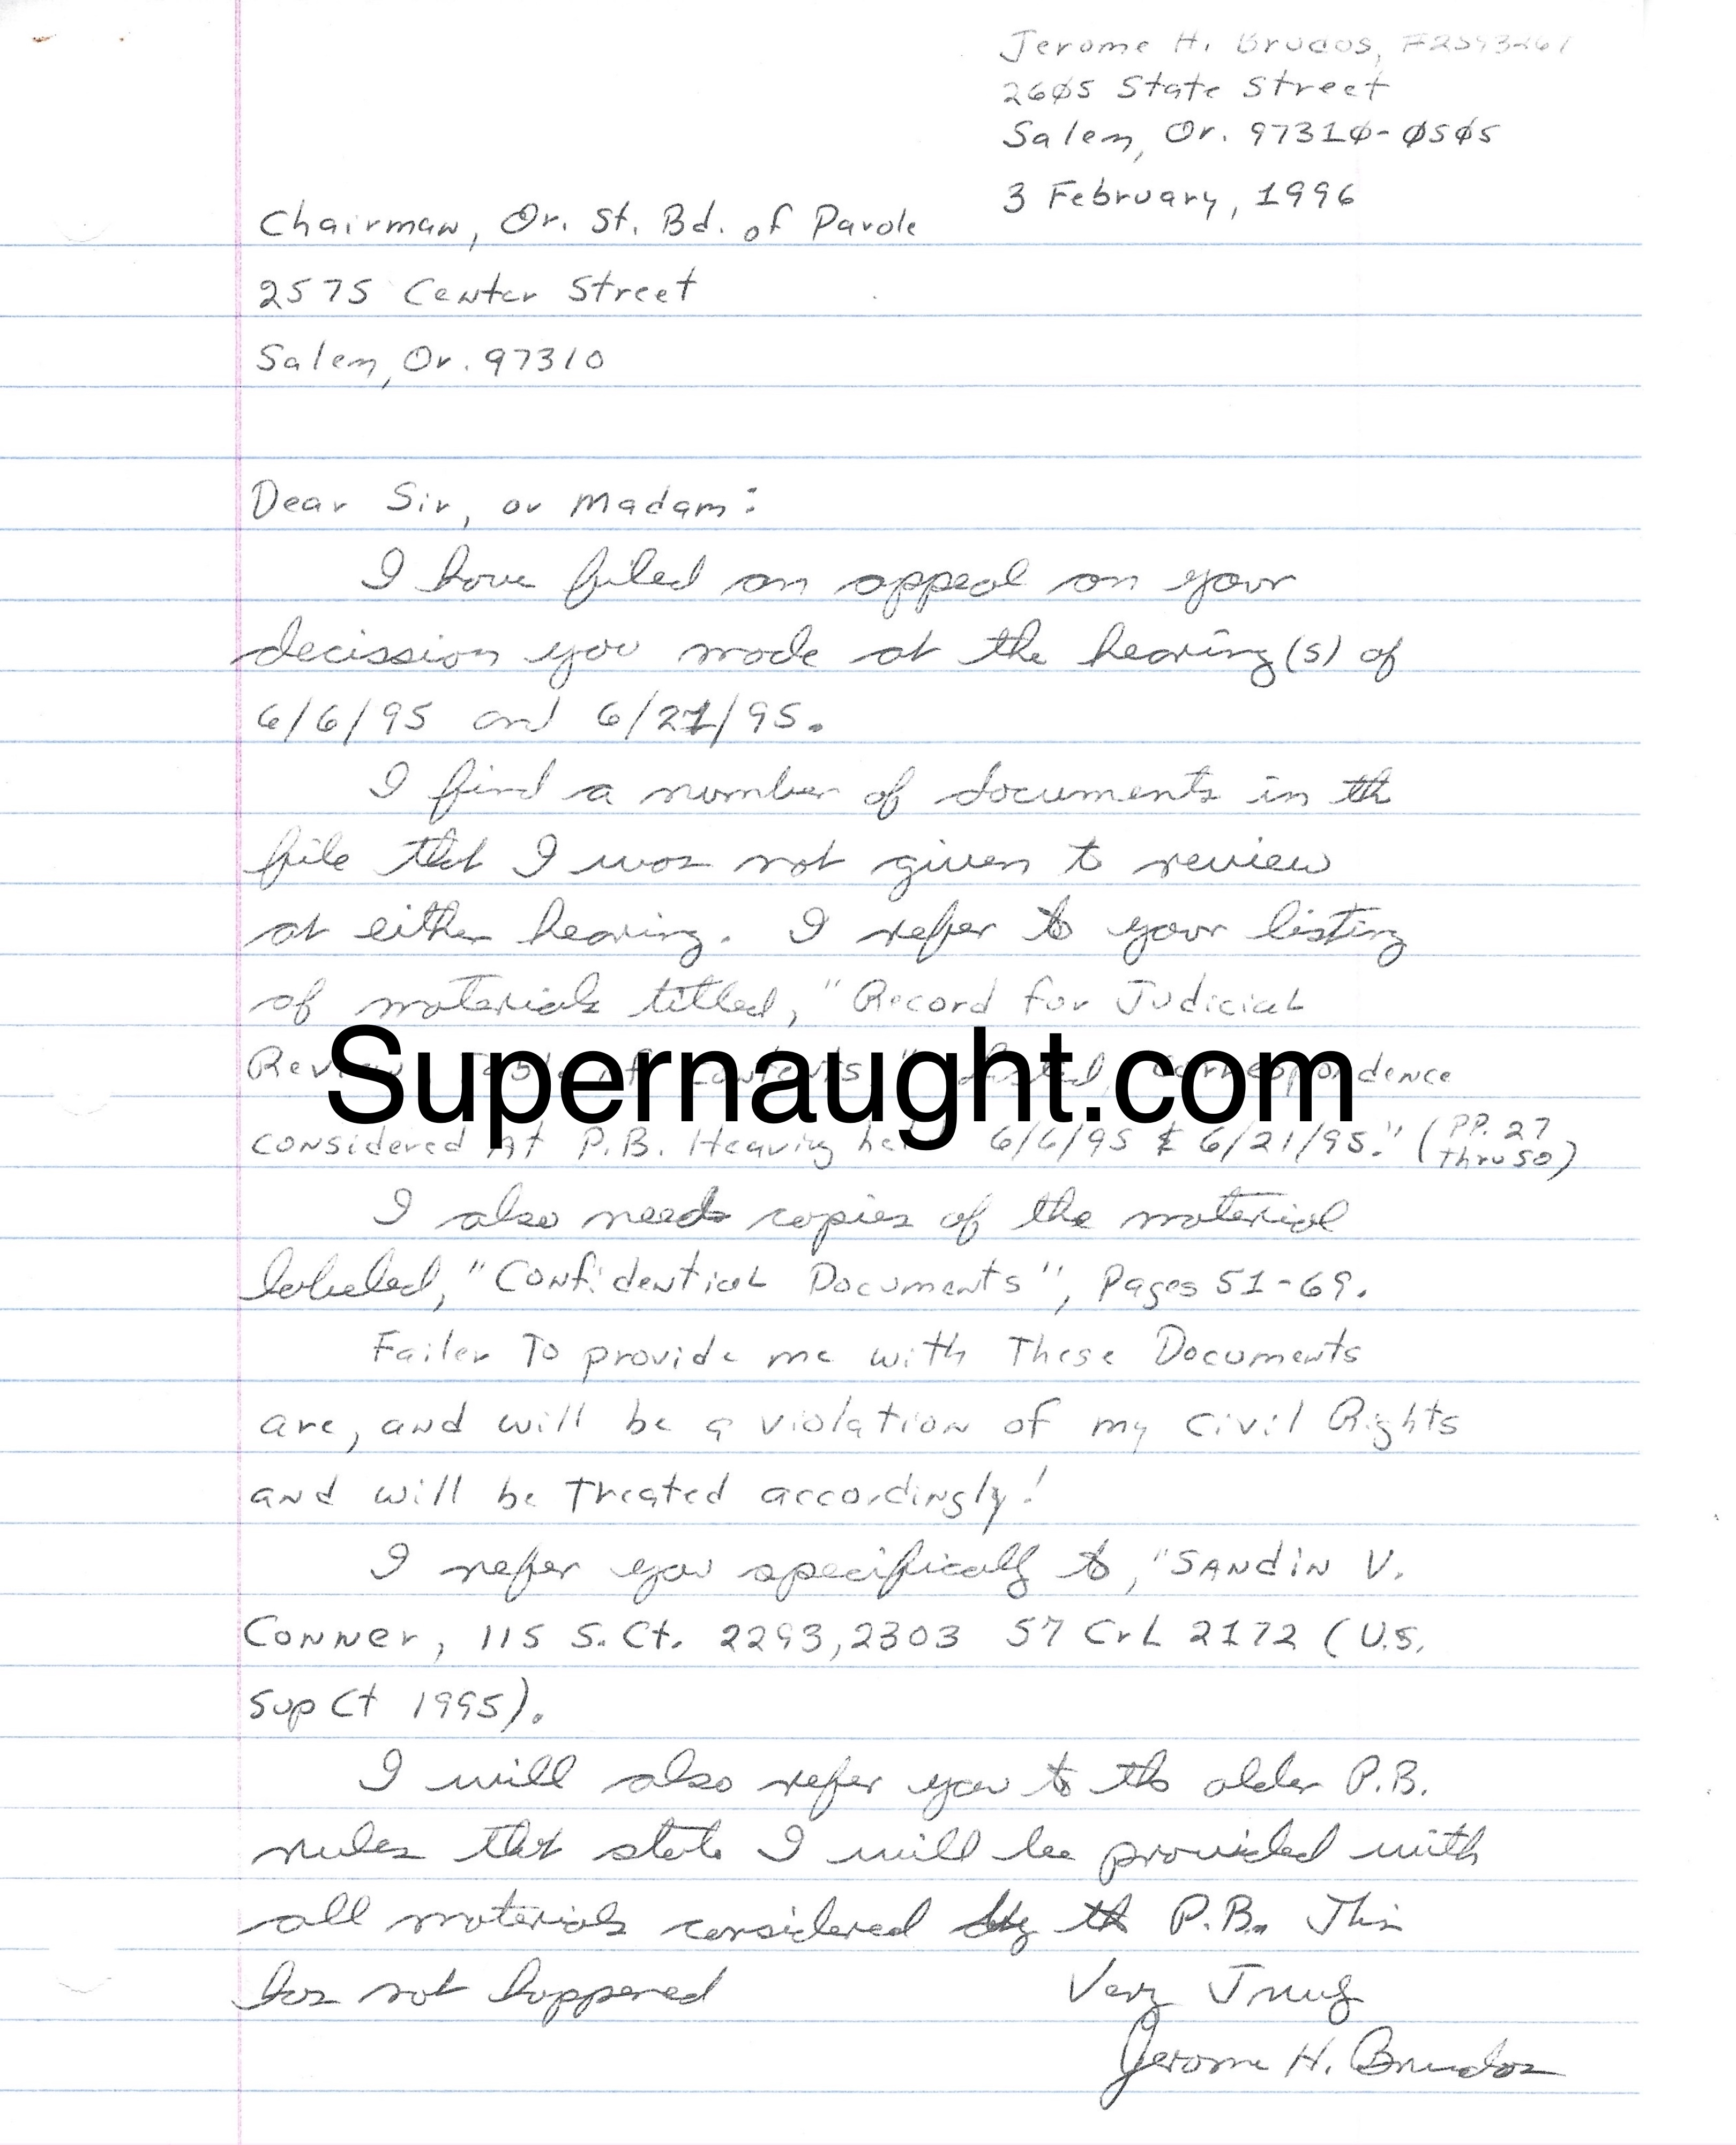 Jerome H. Brudos, #2593261
2605 State Street
Salem, Or. 97310-0505
3 February, 1996
Chairman, Or. St. Bd. of Parole
2575 Center Street
Salem, Or. 97310
Dear Sir, or Madam:
I have filed an appeal on your
decission you made at the hearing(s) of
6/6/95 and 6/21/95.
I find a number of documents in th
file that I was not given to review
at either hearing. I refer to your listing
of materials titled, "Record for Judicial
Review, Table of Contents," Listed, "Correspondence
Supernaught.com
considered At P.B. Hearing held 6/6/95 & 6/21/95." (PP. 27 thru 50)
I also needs copies of the material
labeled, "Confidential Documents", Pages 51-69.
Failer To provide me with These Documents
are, and will be a violation of my Civil Rights
and will be Treated accordingly!
I refer you specifically to, "Sandin V.
Conner, 115 S. Ct. 2293, 2303 57 CrL 2172 (U.S.
Sup Ct 1995).
I will also refer you to th older P.B.
rules that state I will be provided with
all materials considered by th P.B. This
has not happened
Very Truly
Jerome H. Brudos